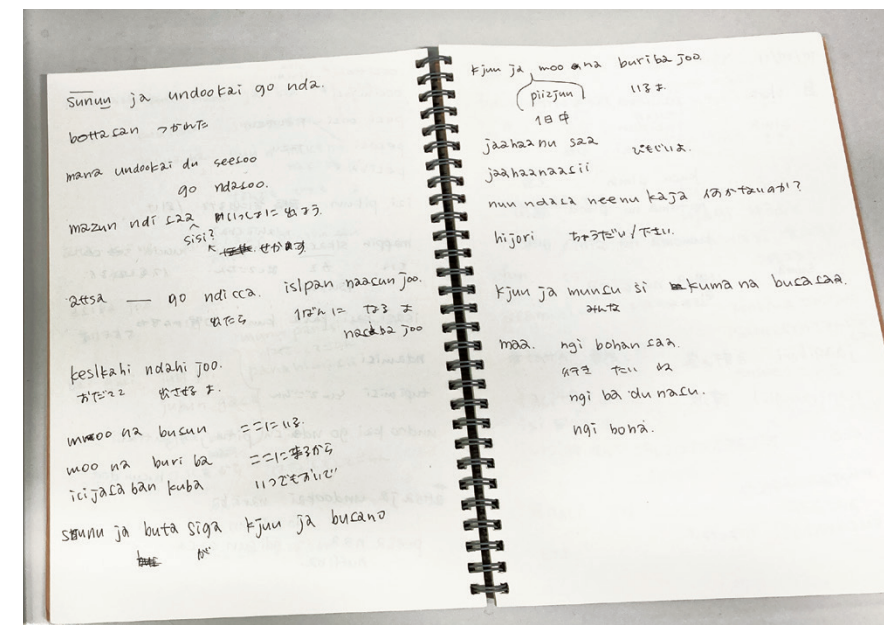 sunuu ja undookai go nda.
bottasan つかれた
mana undookai du seesoo
go ndasoo.
mazun ndi saa いっしょに 出よう.
sisi?
せかます
attsa — go ndi cca. islpan naasun joo.
出たら 1ばんに なる よ
nasiba joo
keslkahi ndahi joo.
おだてて 出させる よ.
moo na busun ここに いる.
moo na buri ba ここに 来るから
icijasa ban kuba いつでも おいで
sunu ja buta siga kjuu ja busano
が
kjuu ja moo na buriba joo.
piizjun いるよ.
1日中
jaahaanu saa ひもじいよ.
jaahaanaasii
nuu ndasa neenu kaja 何がないのか?
hijori ちょうだい/下さい.
kjuu ja munsu si kuma na busasaa.
みんな
maa. ngi bohan saa.
行き たい ね
ngi ba du nasu.
ngi boha.